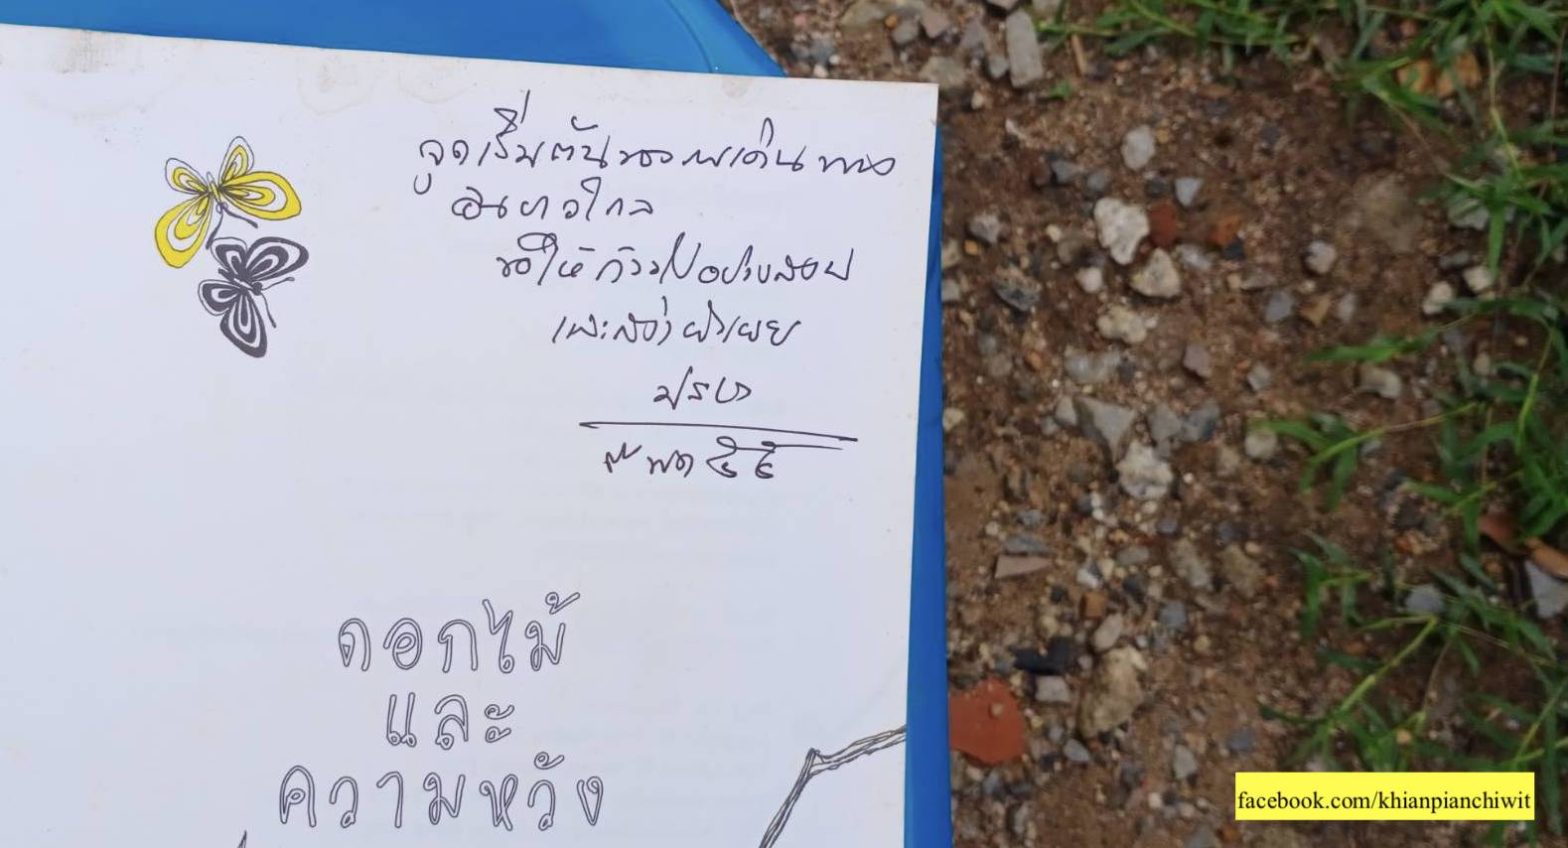 จุดเริ่มต้นของการเดินทาง
อันยาวไกล
ขอให้ก้าวไปอย่างสงบ
และสง่าผ่าเผย
๙ พค ๕๕
ดอกไม้
และ
ความหวัง
facebook.com/khianpianchiwit